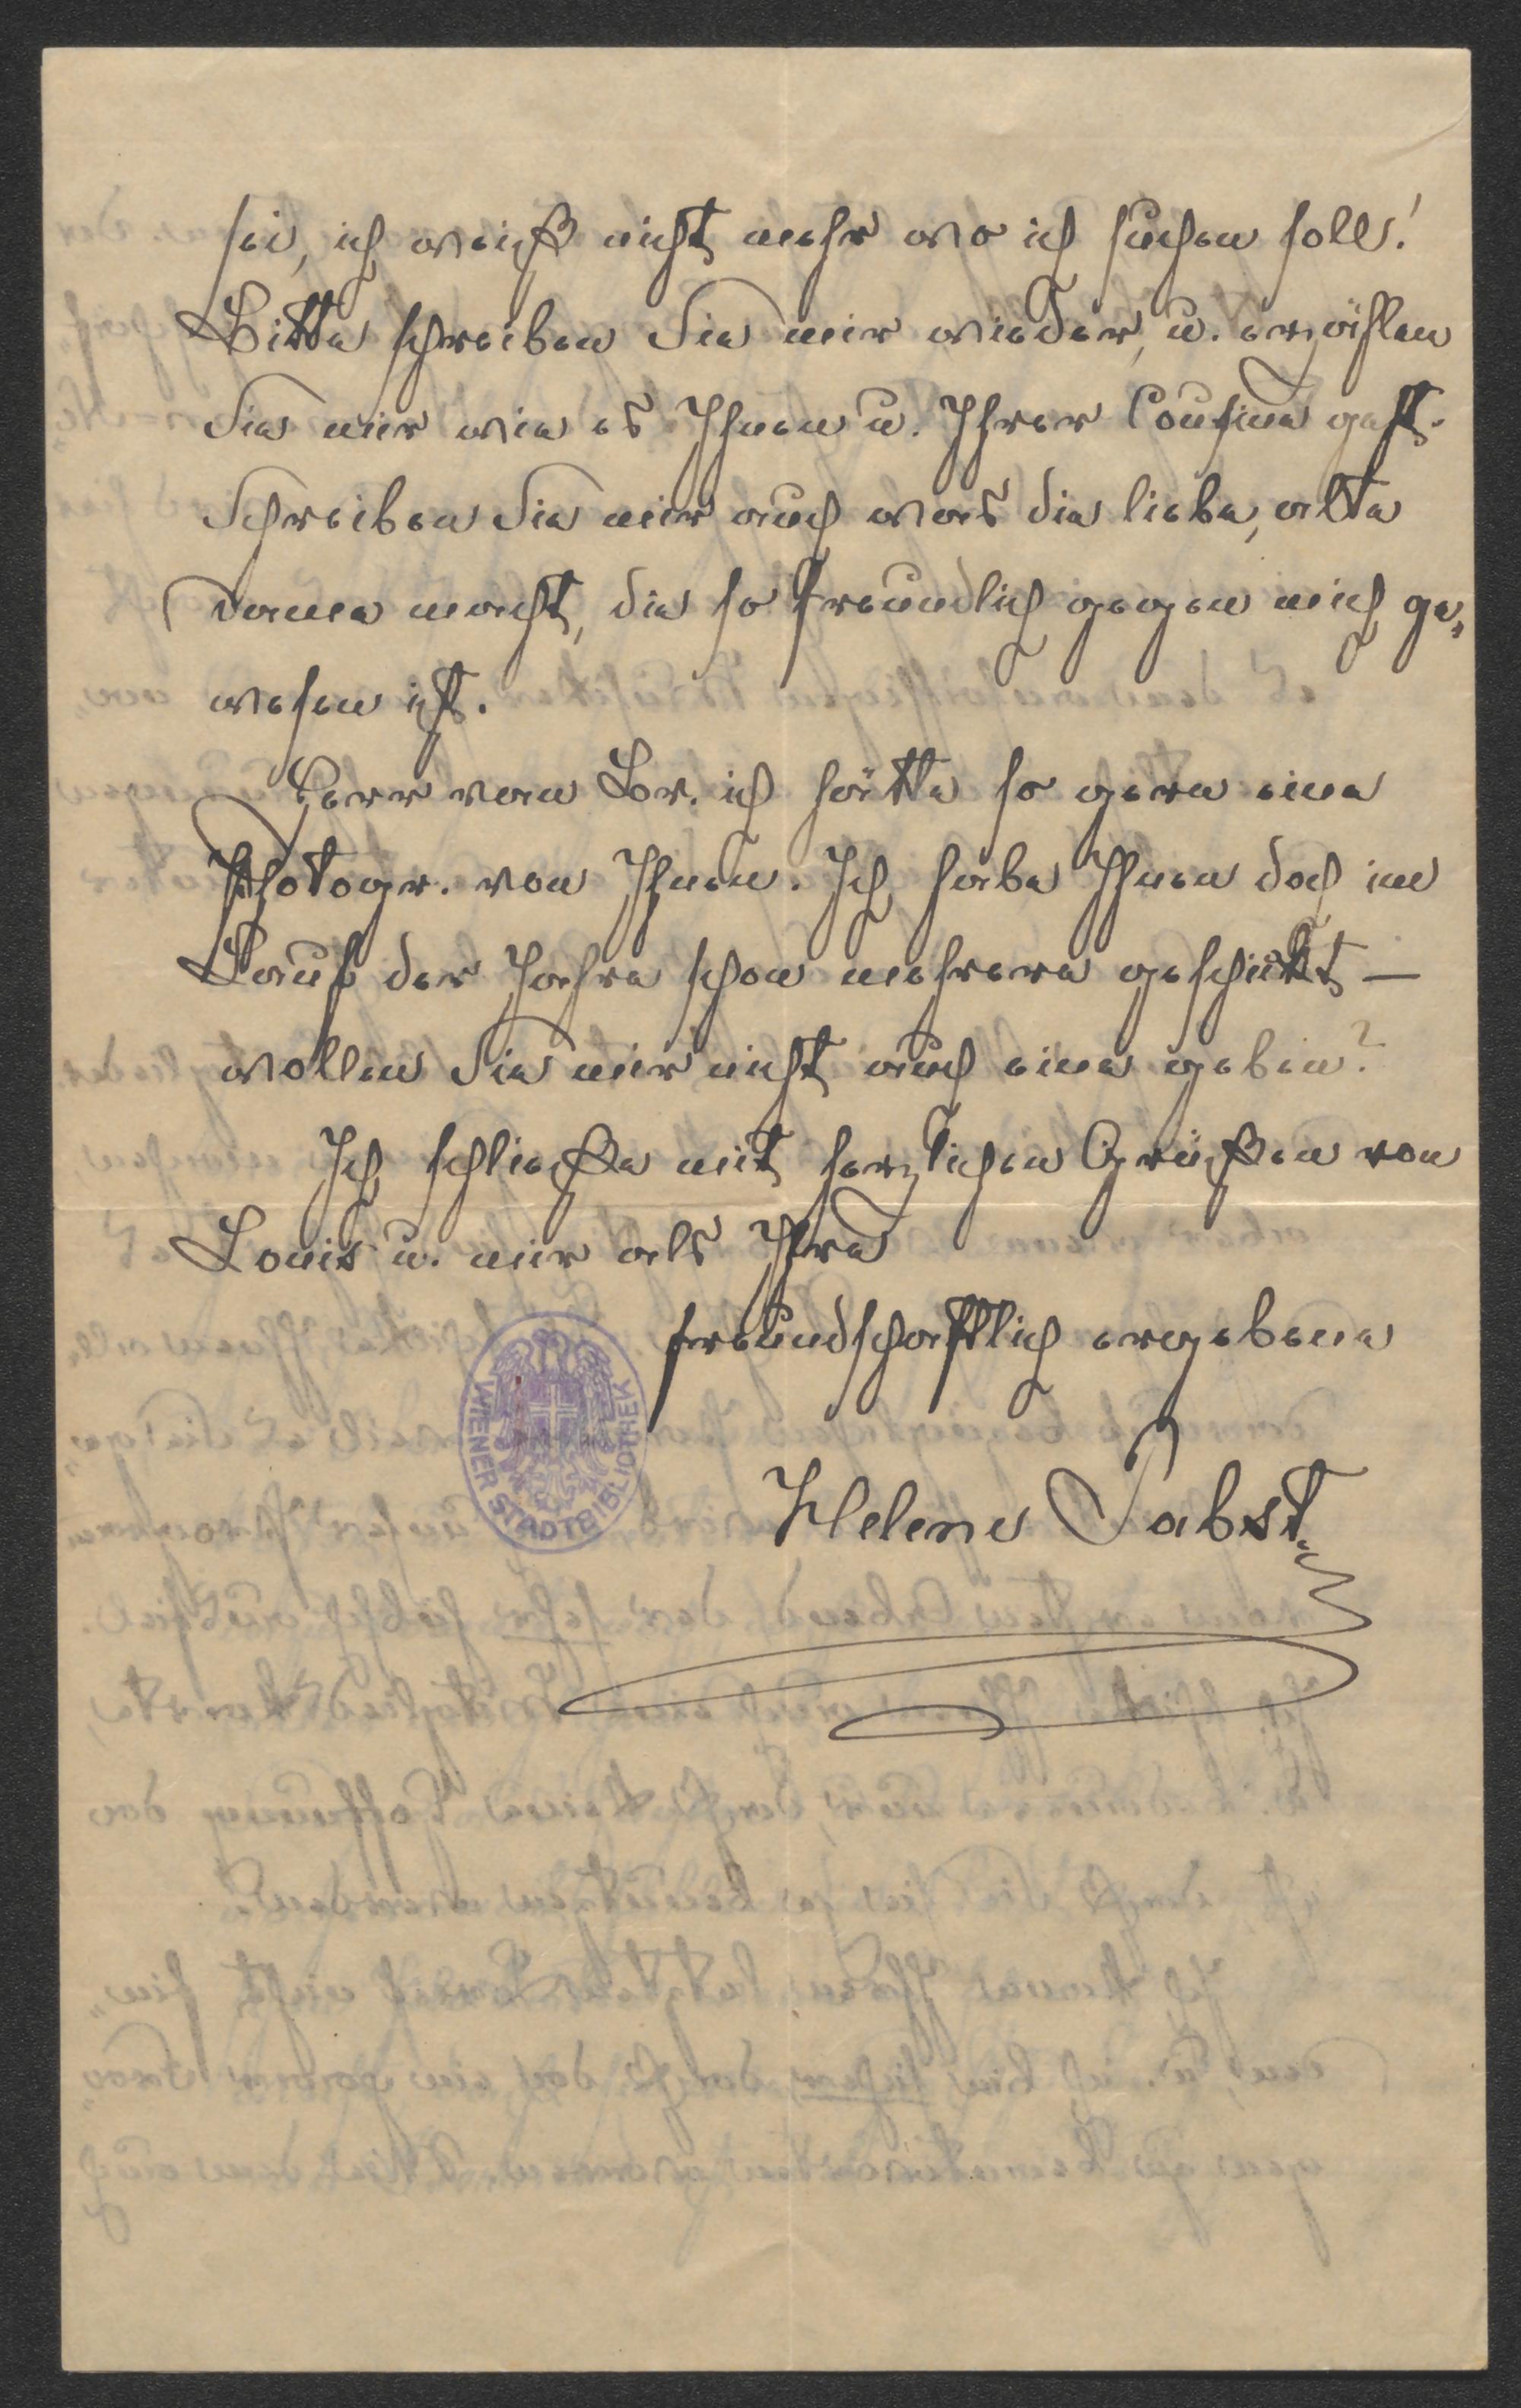 sei, ich weiß nicht mehr wo ich suchen soll!
Bitte schreiben Sie mir wieder, u. erzählen
Sie mir wie es Ihnen u. Ihrer Cousine geht.
Schreiben Sie mir auch was die liebe, alte
Dame macht, die so freundlich gegen mich ge„
wesen ist.
Herr van Br. ich hätte so gern eine
Photogr. von Ihnen. Ich habe Ihnen doch im
Lauf der Jahre schon mehrere geschickt —
wollen Sie mir nicht auch eine geben?
Ich schließe mit herzlichen Grüßen von
Louis u. mir als Ihre
freundschaftlich ergebene
WIENER STADTBIBLIOTHEK
Helene Pabst.